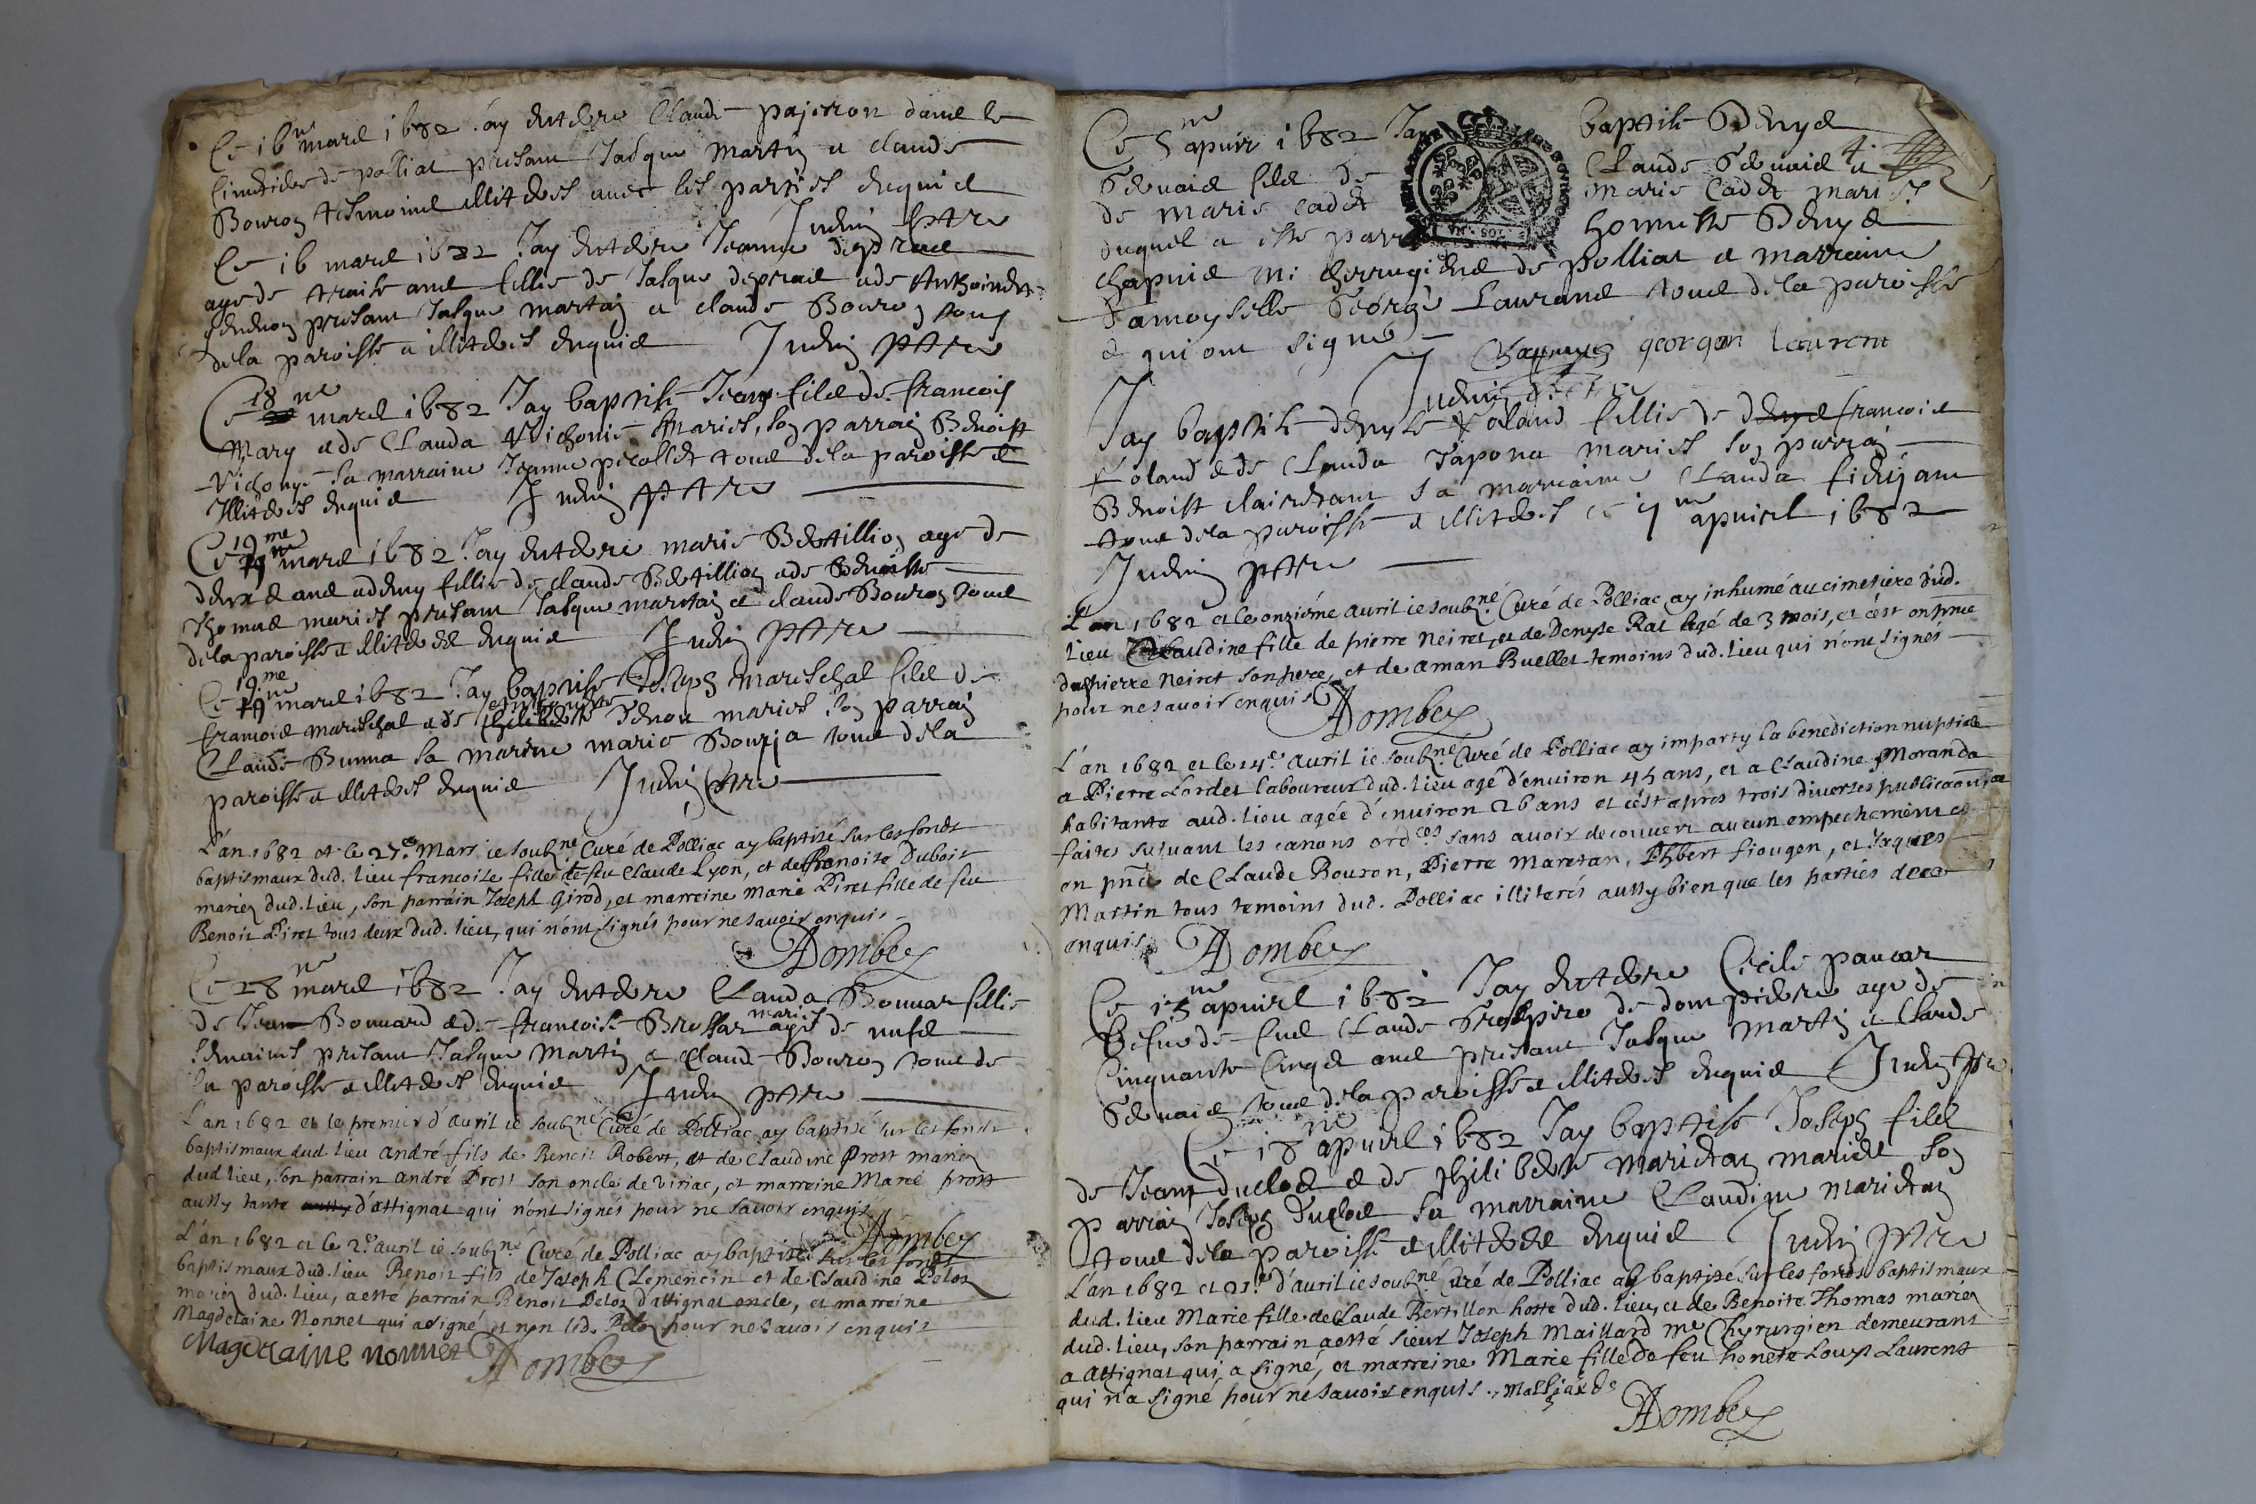 Ce 16me mard 1682 Jay Entere Claude pajeron dame le
Cimetiere de polliat presant Jasque Martin et claude
Bouron tesmoins illiteres avec les parties Enquis
Judin ptre
Ce 16 mard 1682 Jay Entere Jeanne
age de traise ans fillie de Jasque et de Anthoinette
presant Jasque Martin et claude Bouron tous
de la paroisse et illiteres Enquis Judin ptre
Ce 18me mard 1682 Jay baptise Jean fils de francois
Mary et de Clauda Vichonie Maries, son parrain Benoist
Vichone sa marraine Jeanne picollet tous de la paroisse et
Illiteres Enquis Judin ptre
Ce 19me mard 1682 Jay Entere marie Bertillion age de
deux ans et demy fillie de claude Bertillion et de Benoiste
Thomas maries presant Jasque martin et claude Bouron tous
de la paroisse et illiteres Enquis Judin ptre
Ce 19me mard 1682 Jay baptise Joseph mareschal fils de
francois mareschal et de maries son parrain
Claude Bunna sa marine marie tous de la
paroisse et illiteres Enquis Judin ptre
L'an 1682 et le 27e Mars ie soubne Curé de Polliac ay baptisé sur les fonds
baptismaux dud. lieu francoise fille de feu Claude Lyon, et de Benoite Dubois
mariez dud. lieu, son parrain Joseph Girod, et marreine Marie Piret fille de feu
Benoit Piret tous deux dud. lieu, qui n'ont signés pour ne savoir enquis
ADombey
Ce 28me mard 1682 Jay Entere Clauda Bouuar fillie
de Jean Bouuard et de francoise Brossar maries age de nufs
semaines presant Jasque Martin et Claude Bouron tous de
la paroisse et illiteres Enquis Judin ptre
L'an 1682 et le premier d'avril ie soubne Curé de Polliac ay baptisé sur les fonds
baptismaux dud. lieu André fils de Benoit Robert, et de Claudine Prost mariez
dud lieu, son parrain André Prost son oncle de Viriac, et marreine Marie prost
aussy tante d'attignat qui n'ont signés pour ne savoir enquis
ADombey
L'an 1682 et le 2e avril ie soubne Curé de Polliac ay baptisé sur les fonds
baptismaux dud. lieu Benoit fils de Joseph Clemencin et de Claudine Peloz
mariez dud. lieu, a esté parrain Benoit Peloz d'attignat oncle, et marreine
Magdelaine Nonnet qui a signé et non led. Peloz pour ne savoir enquis
Magdelaine nonnet ADombey
Ce 5me apvir 1682 Jay baptise Denyd
Gervaid fild de Claude Gervaid et
de marie cadet marie Cadet maries
duquel a este parr honneste Denyd
Chapuid Me Chirrugiend de polliat et marraine
Damoyselle George Laurand tous de la paroisse
et qui ont signé
Chapuys georgon laurent
Judin ptre
Jay baptise denyse Roland fillie de francois
Roland et de Clauda Tapona maries son parrain
Benoist sa marraine Clauda
tous de la paroisse et illiteres ce 7me apvirl 1682
Judin ptre
L'an 1682 et le onziéme avril ie soubne Curé de Polliac ay inhumé au cimetiere dud.
lieu Claudine fille de pierre Neiret, et de Denyse Rat agé de 3 mois, et c'est en pnce
dud. pierre Neiret son pere, et de aman Buellet temoins dud. lieu qui n'ont signés
pour ne savoir enquis
ADombey
L'an 1682 et le 14e avril ie soubne Curé de Polliac ay imparty la benediction nuptiale
a Pierre Cordet laboureur dud. lieu agé d'environ 45 ans, et a Claudine Moranda
habitante aud. lieu agée d'environ 26 ans et c'est apres trois diverses publicaons
faites suivant les canons ordces sans avoir decouvert aucun empechement et
en pnce de Claude Bouron, Pierre Maretan, Phbert fiougen, et Jaques
Martin tous temoins dud. Polliac illiterés aussy bien que les partiés de ce
enquis ADombey
Ce 15me apvirl 1682 Jay Entere Cecile pauvar
vefve de fud Claude de dompierre age de
Cinquante Cinqs ans presant Jasque Martin et Claude
Gervaid tous de la paroisse et illiteres Enquis Judin ptre
Ce 18me apvirl 1682 Jay baptise Joseph fild
de Jean Duclod et de philiberte maries son
parrain Joseph Duclod sa marraine Claudine
tous de la paroisse et illiteres Enquis Judin ptre
L'an 1682 et 21e d'avril ie soubne Curé de Polliac ay baptisé sur les fonds baptismaux
dud. lieu Marie fille de Claude Bertillon hoste dud. lieu, et de Benoite Thomas mariez
dud. lieu, son parrain a esté sieur Joseph Maillard me Chyrurgien demeurant
a attignat qui a signé, et marreine Marie fille de feu honete Louys Laurent
qui n'a signé pour ne savoir enquis. Malliard
ADombey